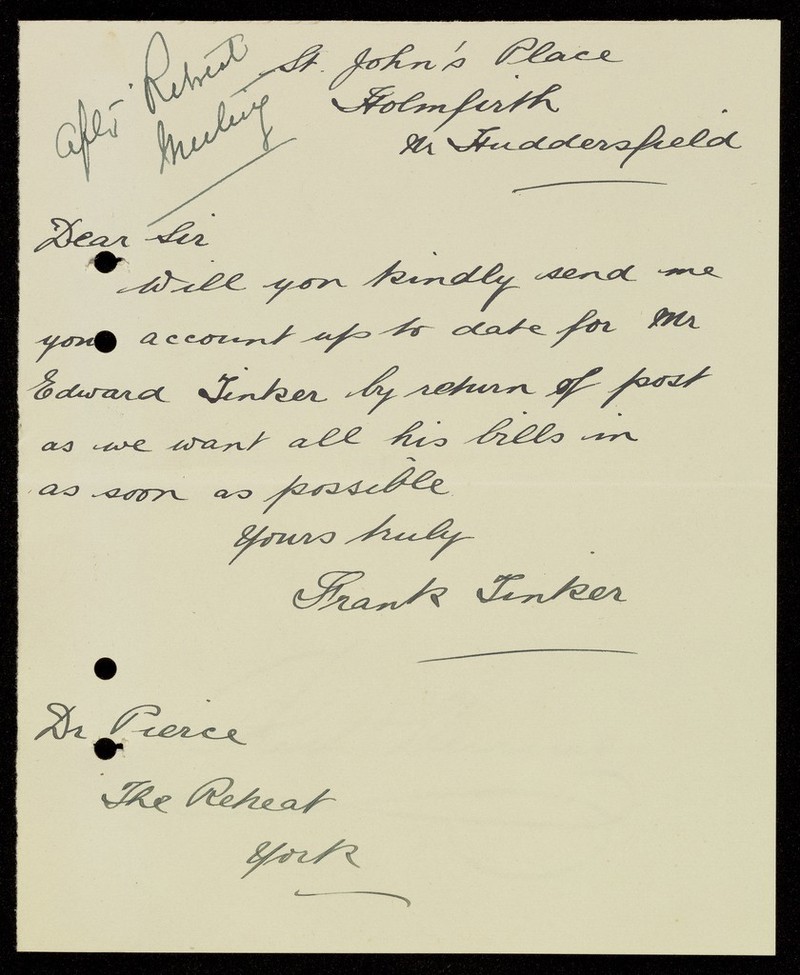 After Retreat
Meeting
St. John's Place
Holmfirth
Nr Huddersfield
Dear Sir
Will you kindly send me
your account up to date for Mr
Edward Tinker by return of post
as we want all his bills in
as soon as possible
Yours truly
Frank Tinker
Dr Pierce
The Retreat
York